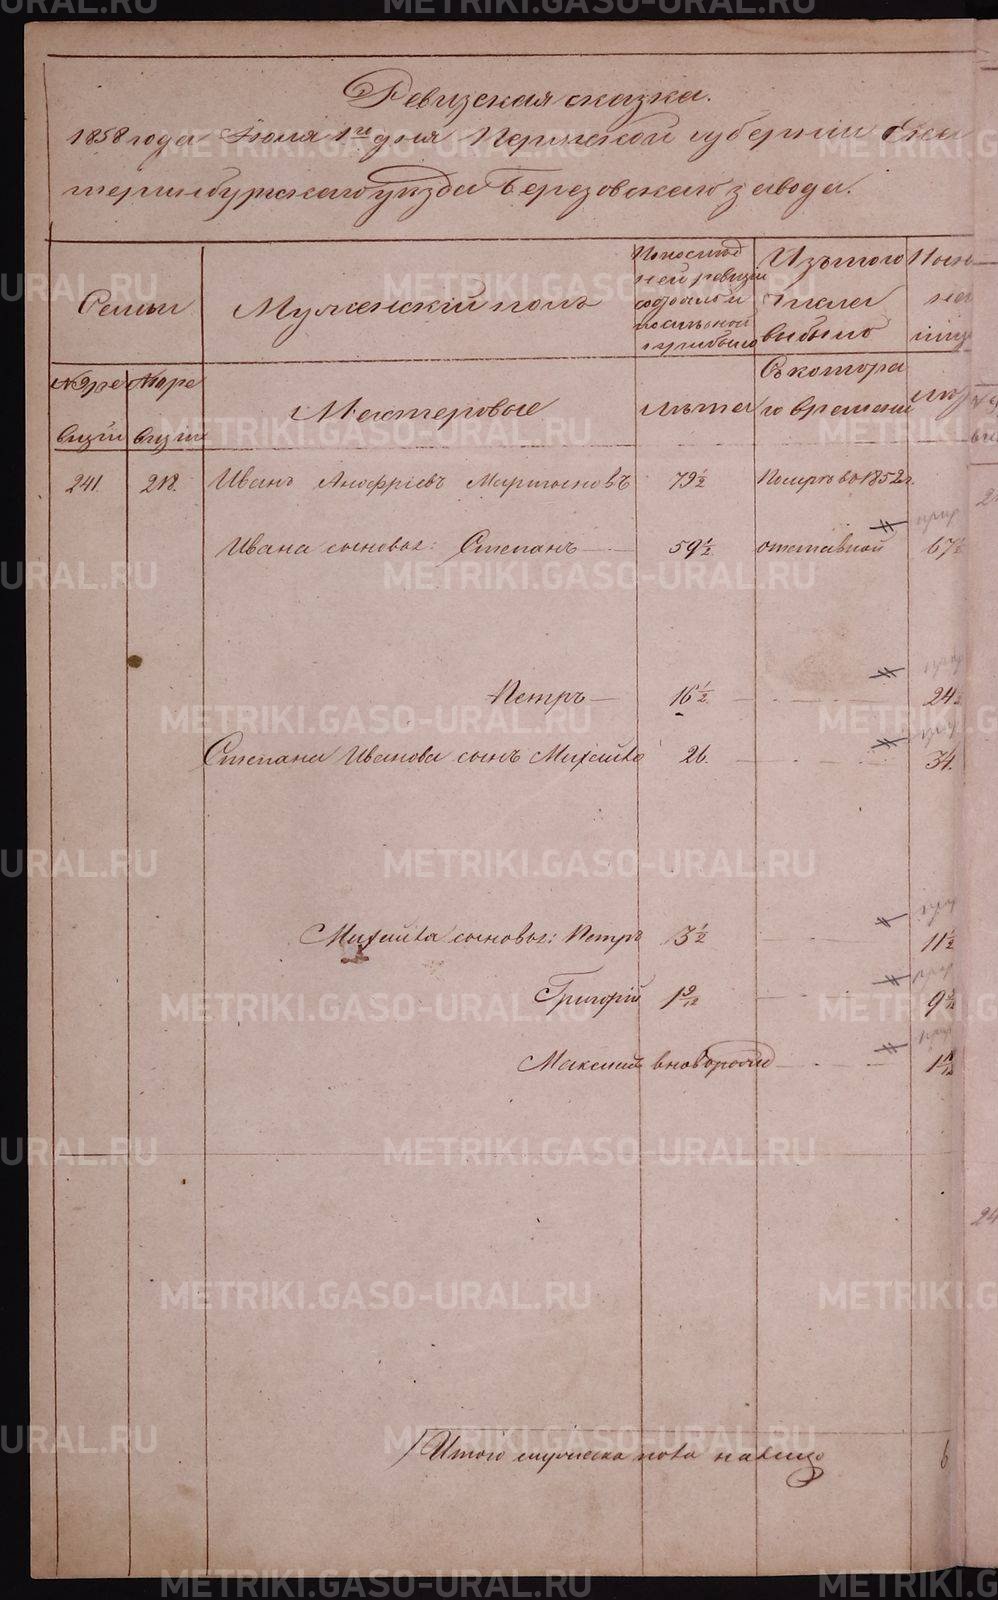 Ревизская сказка.
1858 года Июля 1го дня Пермской губернии Ека
теринбургскаго уѣзда Березовскаго завода.
Семьи
Мужескій полъ
По послѣд
ней ревизіи
состояло и
послѣ оной
прибыло
Изъ того
числа
выбыло
Нын
№ по ре
визіи
№ по ре
визіи
Мастеровые
лѣта
Съ котора
го времени
241. 218. Иванъ Анофріевъ Мартьяновъ 79 1/2 Померъ в 1852 г.
Ивана сыновья: Степанъ — 59 1/2 отставной 67 1/2
Петръ — 16 1/2 24 1/2
Степана Иванова сынъ Михайло 26. 34.
Михайла сыновья: Петръ 3 1/2 11 1/2
Григорій 1 9/12 9 9/12
Максимъ вновьрожд 1
Итого мужеска пола налицо 6
METRIKI.GASO-URAL.RU